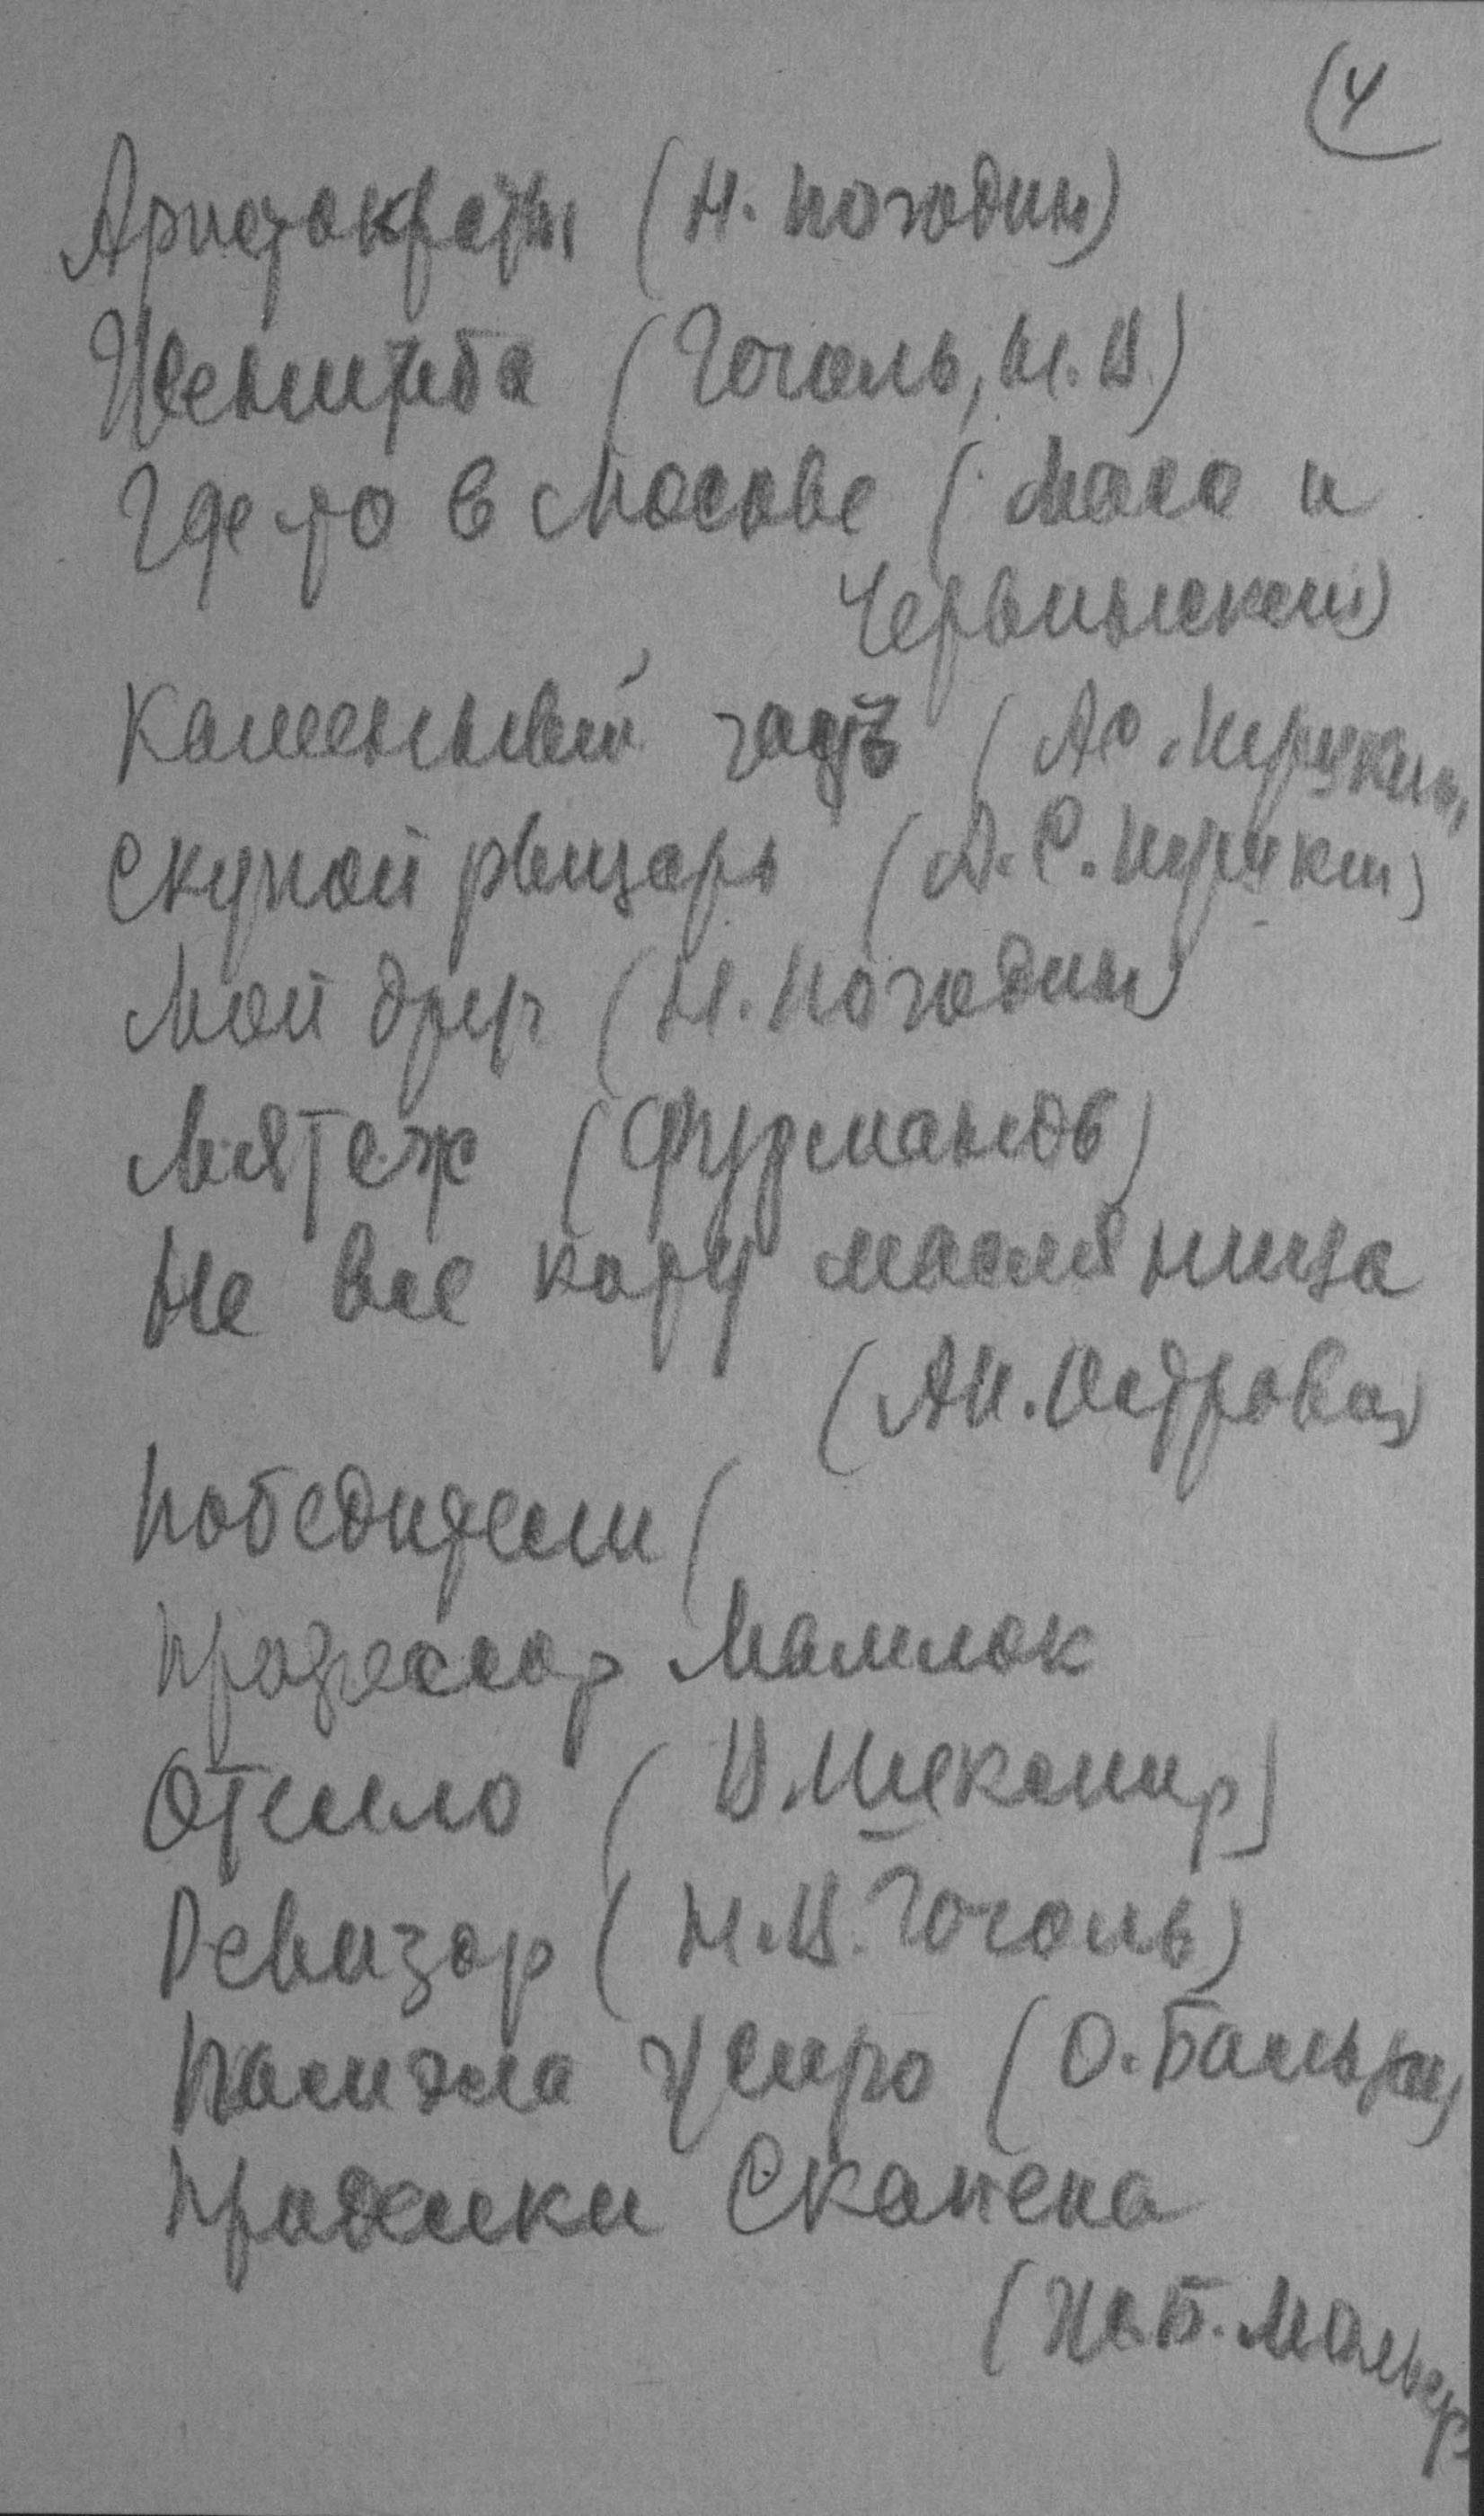 4
Аристократы (Н. Погодин)
Женитьба (Гоголь, Н. В.)
Где то в Москве (Масс и
Червинский)
Каменный гость (АС. Пушкин,
Скупой рыцарь (А. С. Пушкин)
Мой друг (Н. Погодин)
Мятеж (Фурманов)
Не все коту масляница
(АН. Островск)
Победители (
Профессор Мамлок
Отелло (В. Шекспир)
Ревизор (Н. В. Гоголь)
Памэла Жиро (О. Бальзак)
Проделки Скапена
(Ж. Б. Мольер